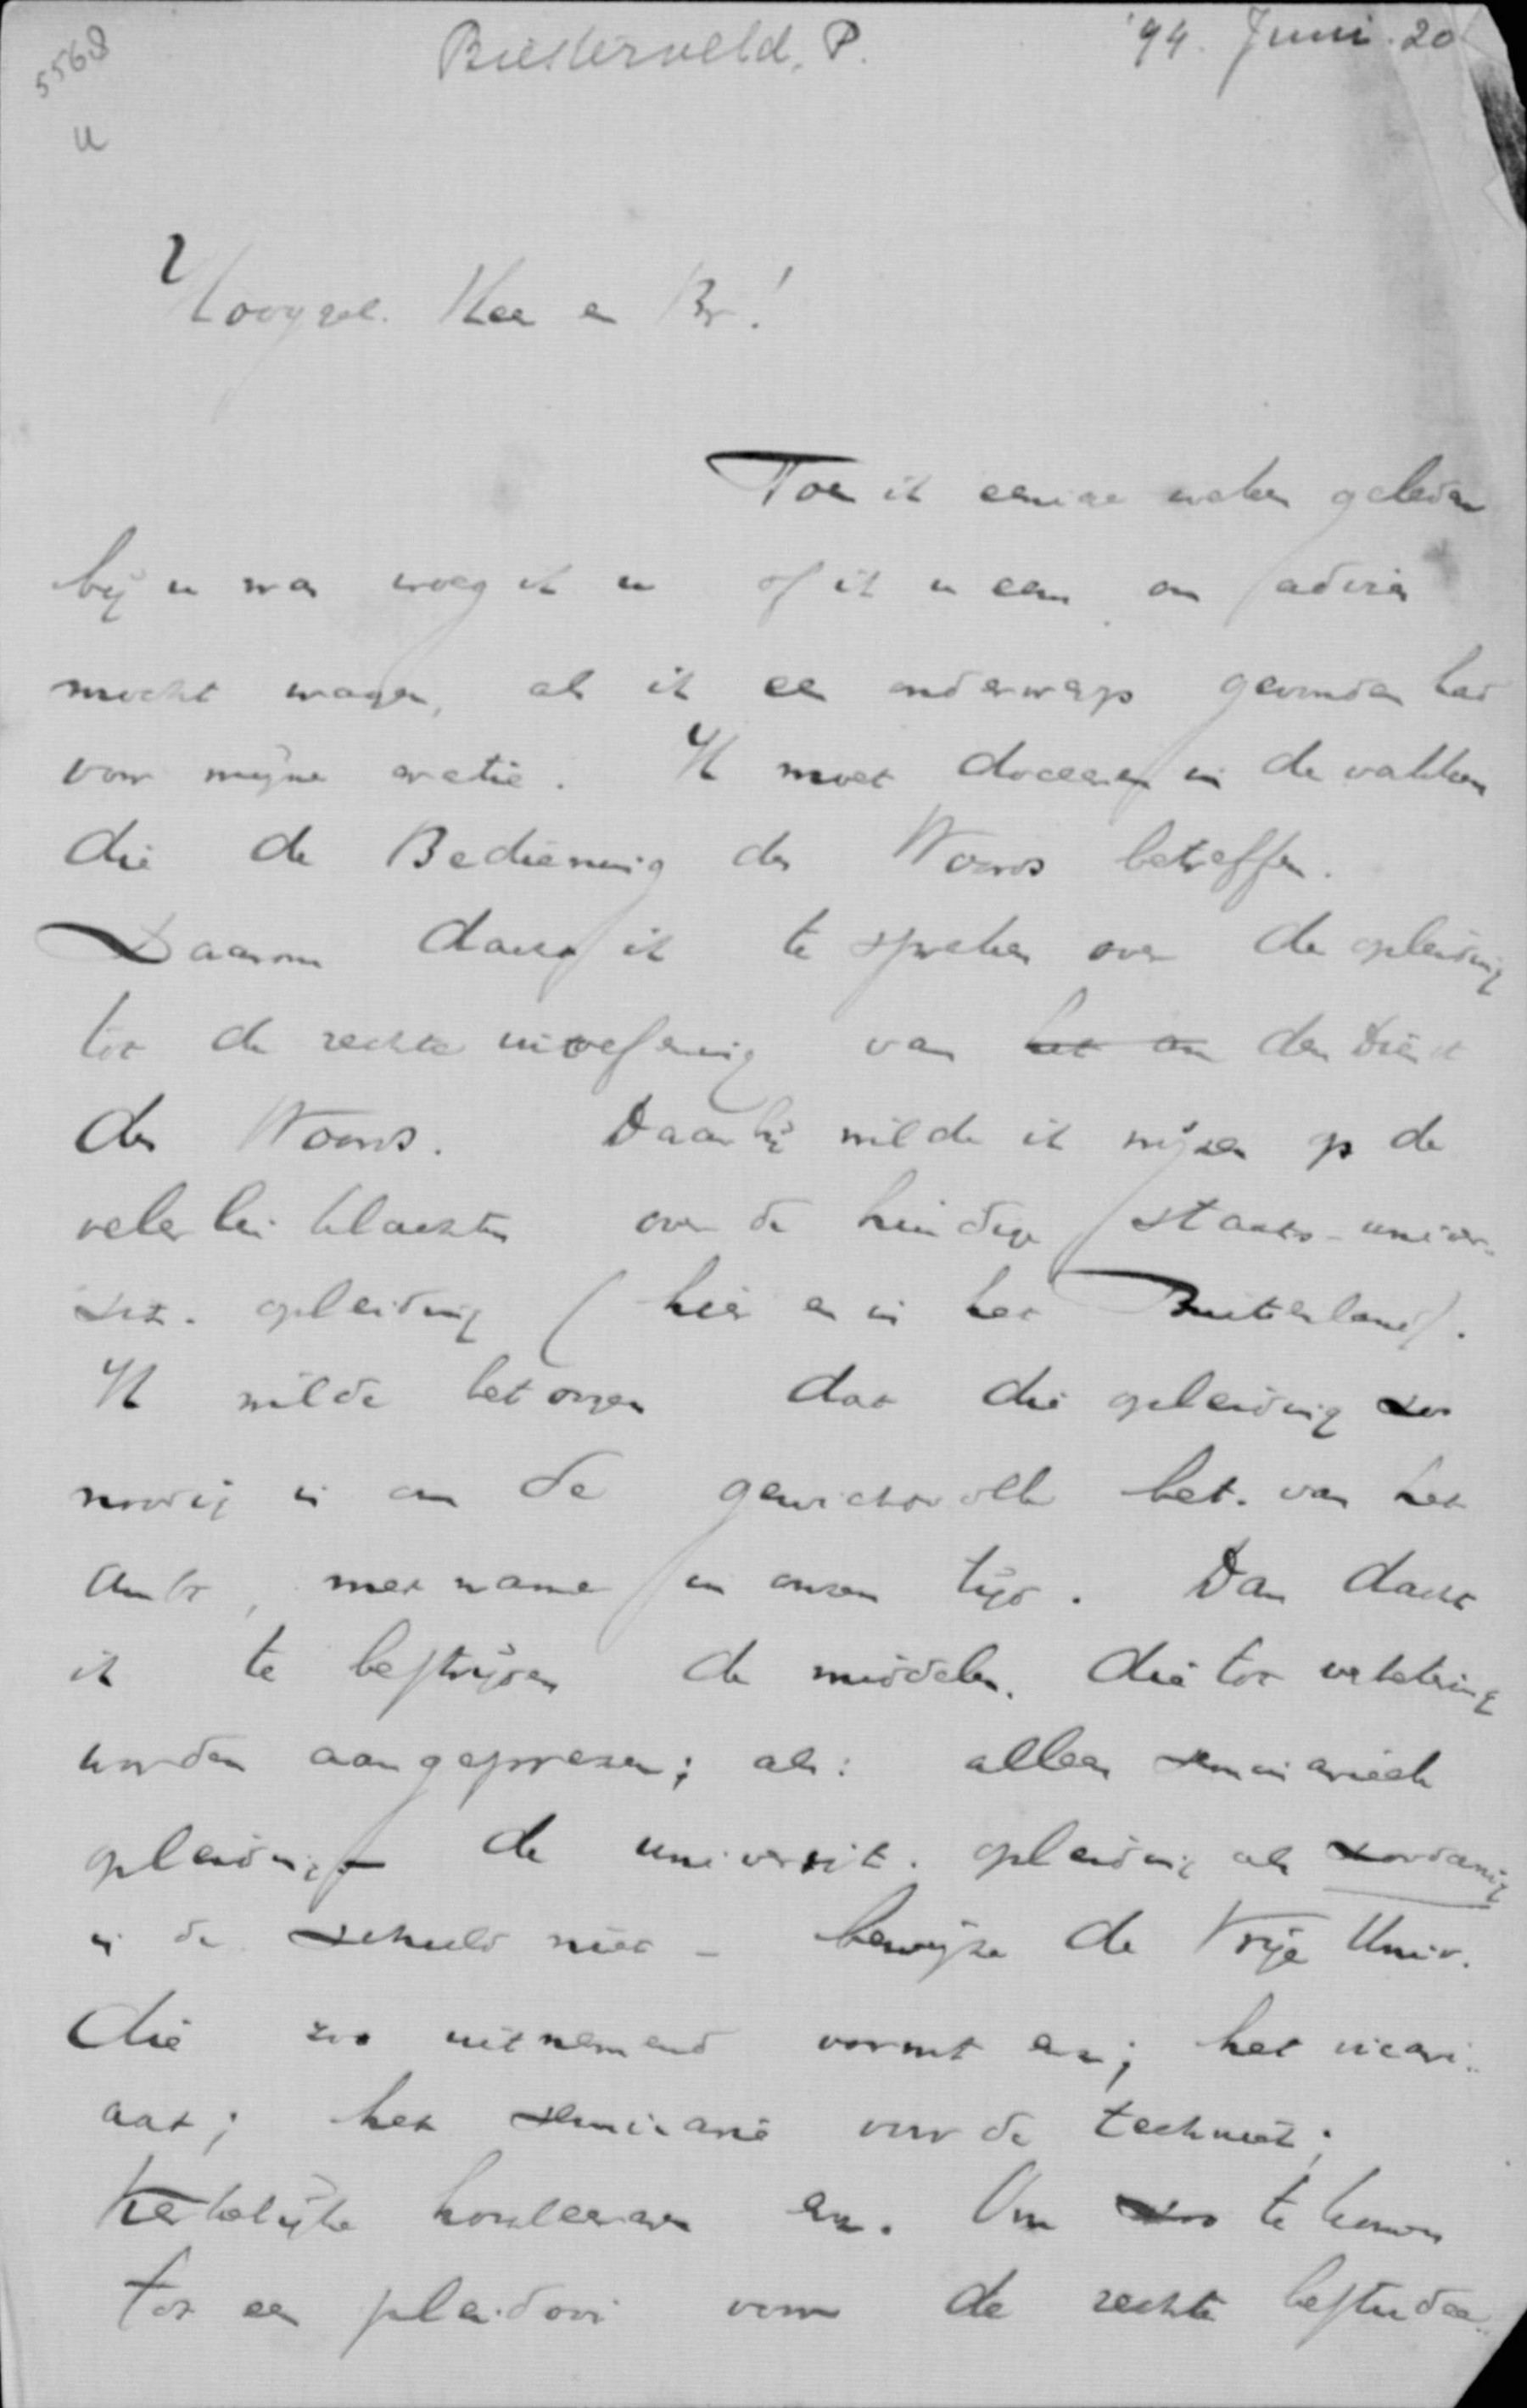 5568
u
Biesterveld, P.
'94. Juni. 20
Hooggel. Heer en Br!
Toen ik eenige weken geleden
bij u was vroeg ik u of ik u eens om advies
mocht vragen, als ik een onderwerp gevonden had
voor mijne oratie. Ik moet doceeren in de vakken
die de Bediening des Woords betreffen.
Daarom dacht ik te spreken over de opleiding
tot de rechte uitoefening van het am den Dienst
des Woords. Daarbij wilde ik wijzen op de
velerlei klachten over de huidige staats-univer-
sit. opleiding (hier en in het Buitenland).
Ik wilde betoogen dat die opleiding zoo
noodig is om de gewichtvolle bet. van het
ambt, met name in onzen tijd. Dan dacht
ik te bestrijden de middelen, die tot verbetering
worden aangeprezen; als: alleen seminariech
opleiding - de universit. opleiding als zoodanig
is de schuld niet - bewijze de Vrije Univ.
die zoo uitnemend vormt enz; het vicari-
aat; het seminarie voor de techniek;
kerkelijke hoogleeraren enz. Om zoo te komen
tot een pleidooi voor de rechte bestudee-